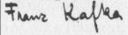 Franz Kafka